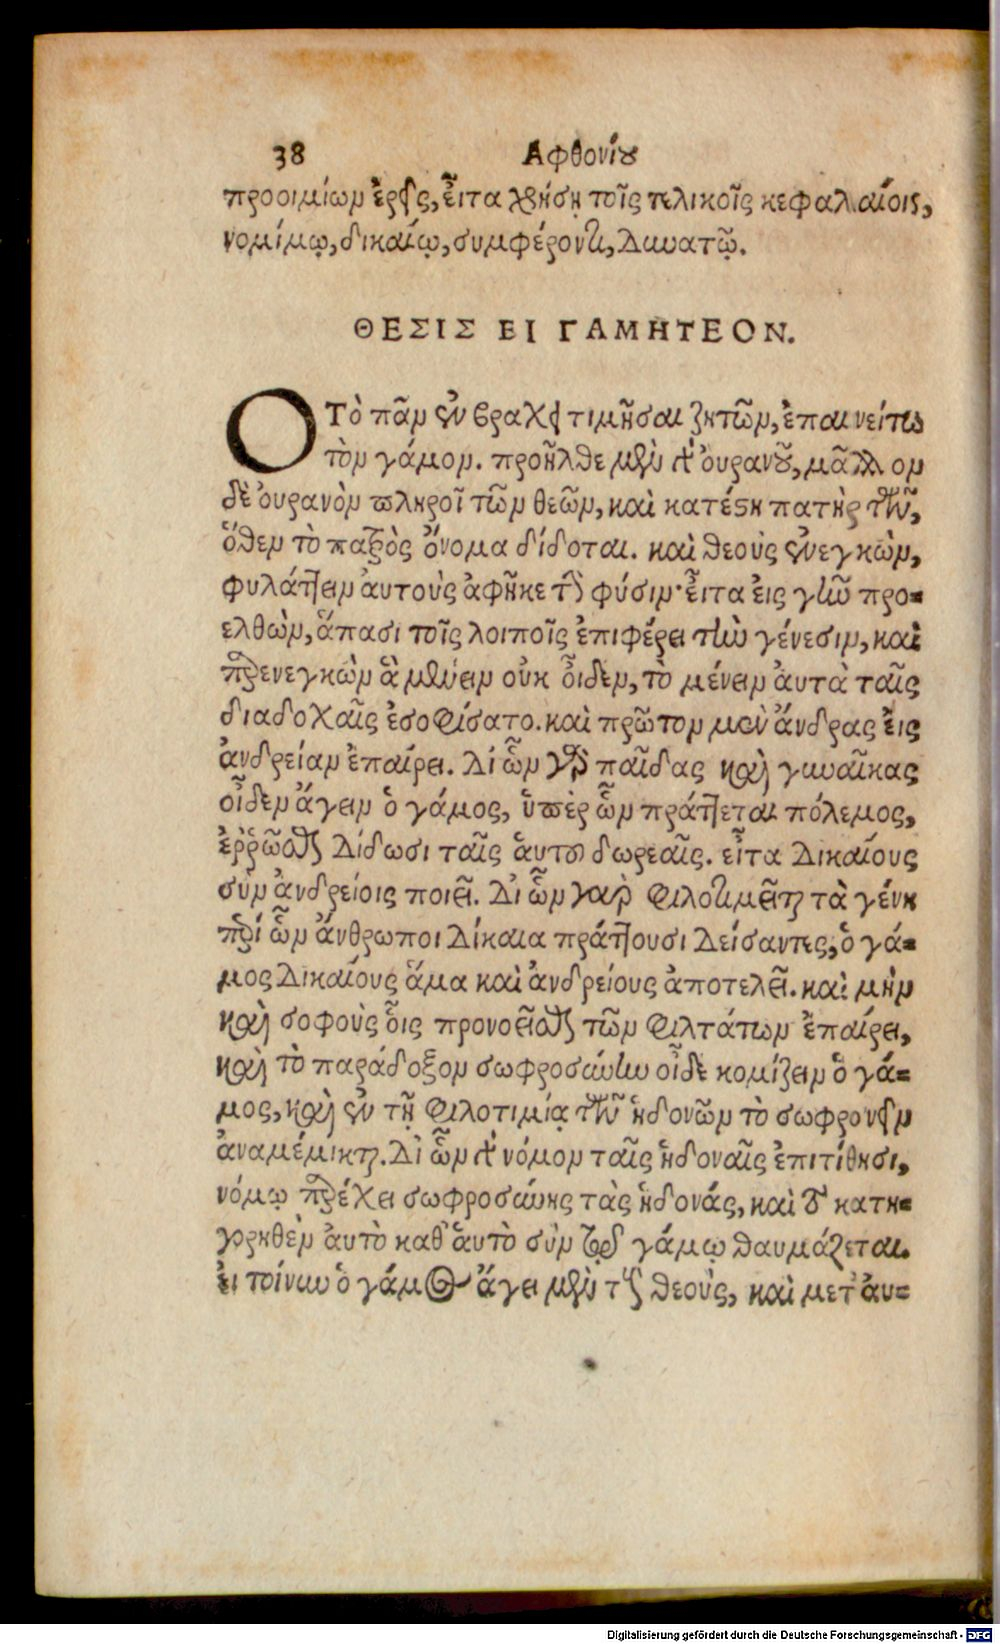 38 Αφθονίου
προοιμίων ἐρεῖς, εἶτα χρήσῃ τοῖς τελικοῖς κεφαλαίοις,
νομίμῳ, δικαίῳ, συμφέροντι, δυνατῷ.
ΘΕΣΙΣ ΕΙ ΓΑΜΗΤΕΟΝ.
Ὁ Τὸ πᾶν ἐν βραχεῖ τιμῆσαι ζητῶν, ἐπαινείτω
τὸν γάμον. προῆλθε μὲν ἐξ οὐρανοῦ, μᾶλλον
δὲ οὐρανὸν πληροῖ τῶν θεῶν, καὶ κατέστη πατὴρ τούτων,
ὅθεν τὸ πατρὸς ὄνομα δίδοται. καὶ θεοὺς ἐνεγκὼν,
φυλάττειν αὐτοὺς ἀφῆκε τὴν φύσιν· εἶτα εἰς γῆν προ=
ελθὼν, ἅπασι τοῖς λοιποῖς ἐπιφέρει τὴν γένεσιν, καὶ
παρενεγκὼν ἃ μένειν οὐκ οἶδεν, τὸ μένειν αὐτὰ ταῖς
διαδοχαῖς ἐσοφίσατο. καὶ πρῶτον μὲν ἄνδρας εἰς
ἀνδρείαν ἐπαίρει. δι ὧν γὰρ παῖδας καὶ γυναῖκας
οἶδεν ἄγειν ὁ γάμος, ὑπὲρ ὧν πράττεται πόλεμος,
ἐῤῥῶσθαι δίδωσι ταῖς αὑτοῦ δωρεαῖς. εἶτα δικαίους
σὺν ἀνδρείοις ποιεῖ. δι ὧν γὰρ φιλοτιμεῖται τὰ γένη
περὶ ὧν ἄνθρωποι δίκαια πράττουσι δείσαντες, ὁ γά=
μος δικαίους ἅμα καὶ ἀνδρείους ἀποτελεῖ. καὶ μὴν
καὶ σοφοὺς οἷς προνοεῖσθαι τῶν φιλτάτων ἐπαίρει,
καὶ τὸ παράδοξον σωφροσύνην οἶδε κομίζειν ὁ γά=
μος, καὶ ἐν τῇ φιλοτιμίᾳ τῶν ἡδονῶν τὸ σωφρονεῖν
ἀναμέμικται. δι ὧν γὰρ νόμον ταῖς ἡδοναῖς ἐπιτίθησι,
νόμῳ παρέχει σωφροσύνης τὰς ἡδονάς, καὶ τὸ κατη=
γορηθὲν αὐτὸ καθ' αὑτὸ σὺν τῷ γάμῳ θαυμάζεται.
εἰ τοίνυν ὁ γάμος ἄγει μὲν τοὺς θεοὺς, καὶ μετ' αὐ=
Digitalisierung gefördert durch die Deutsche Forschungsgemeinschaft - DFG